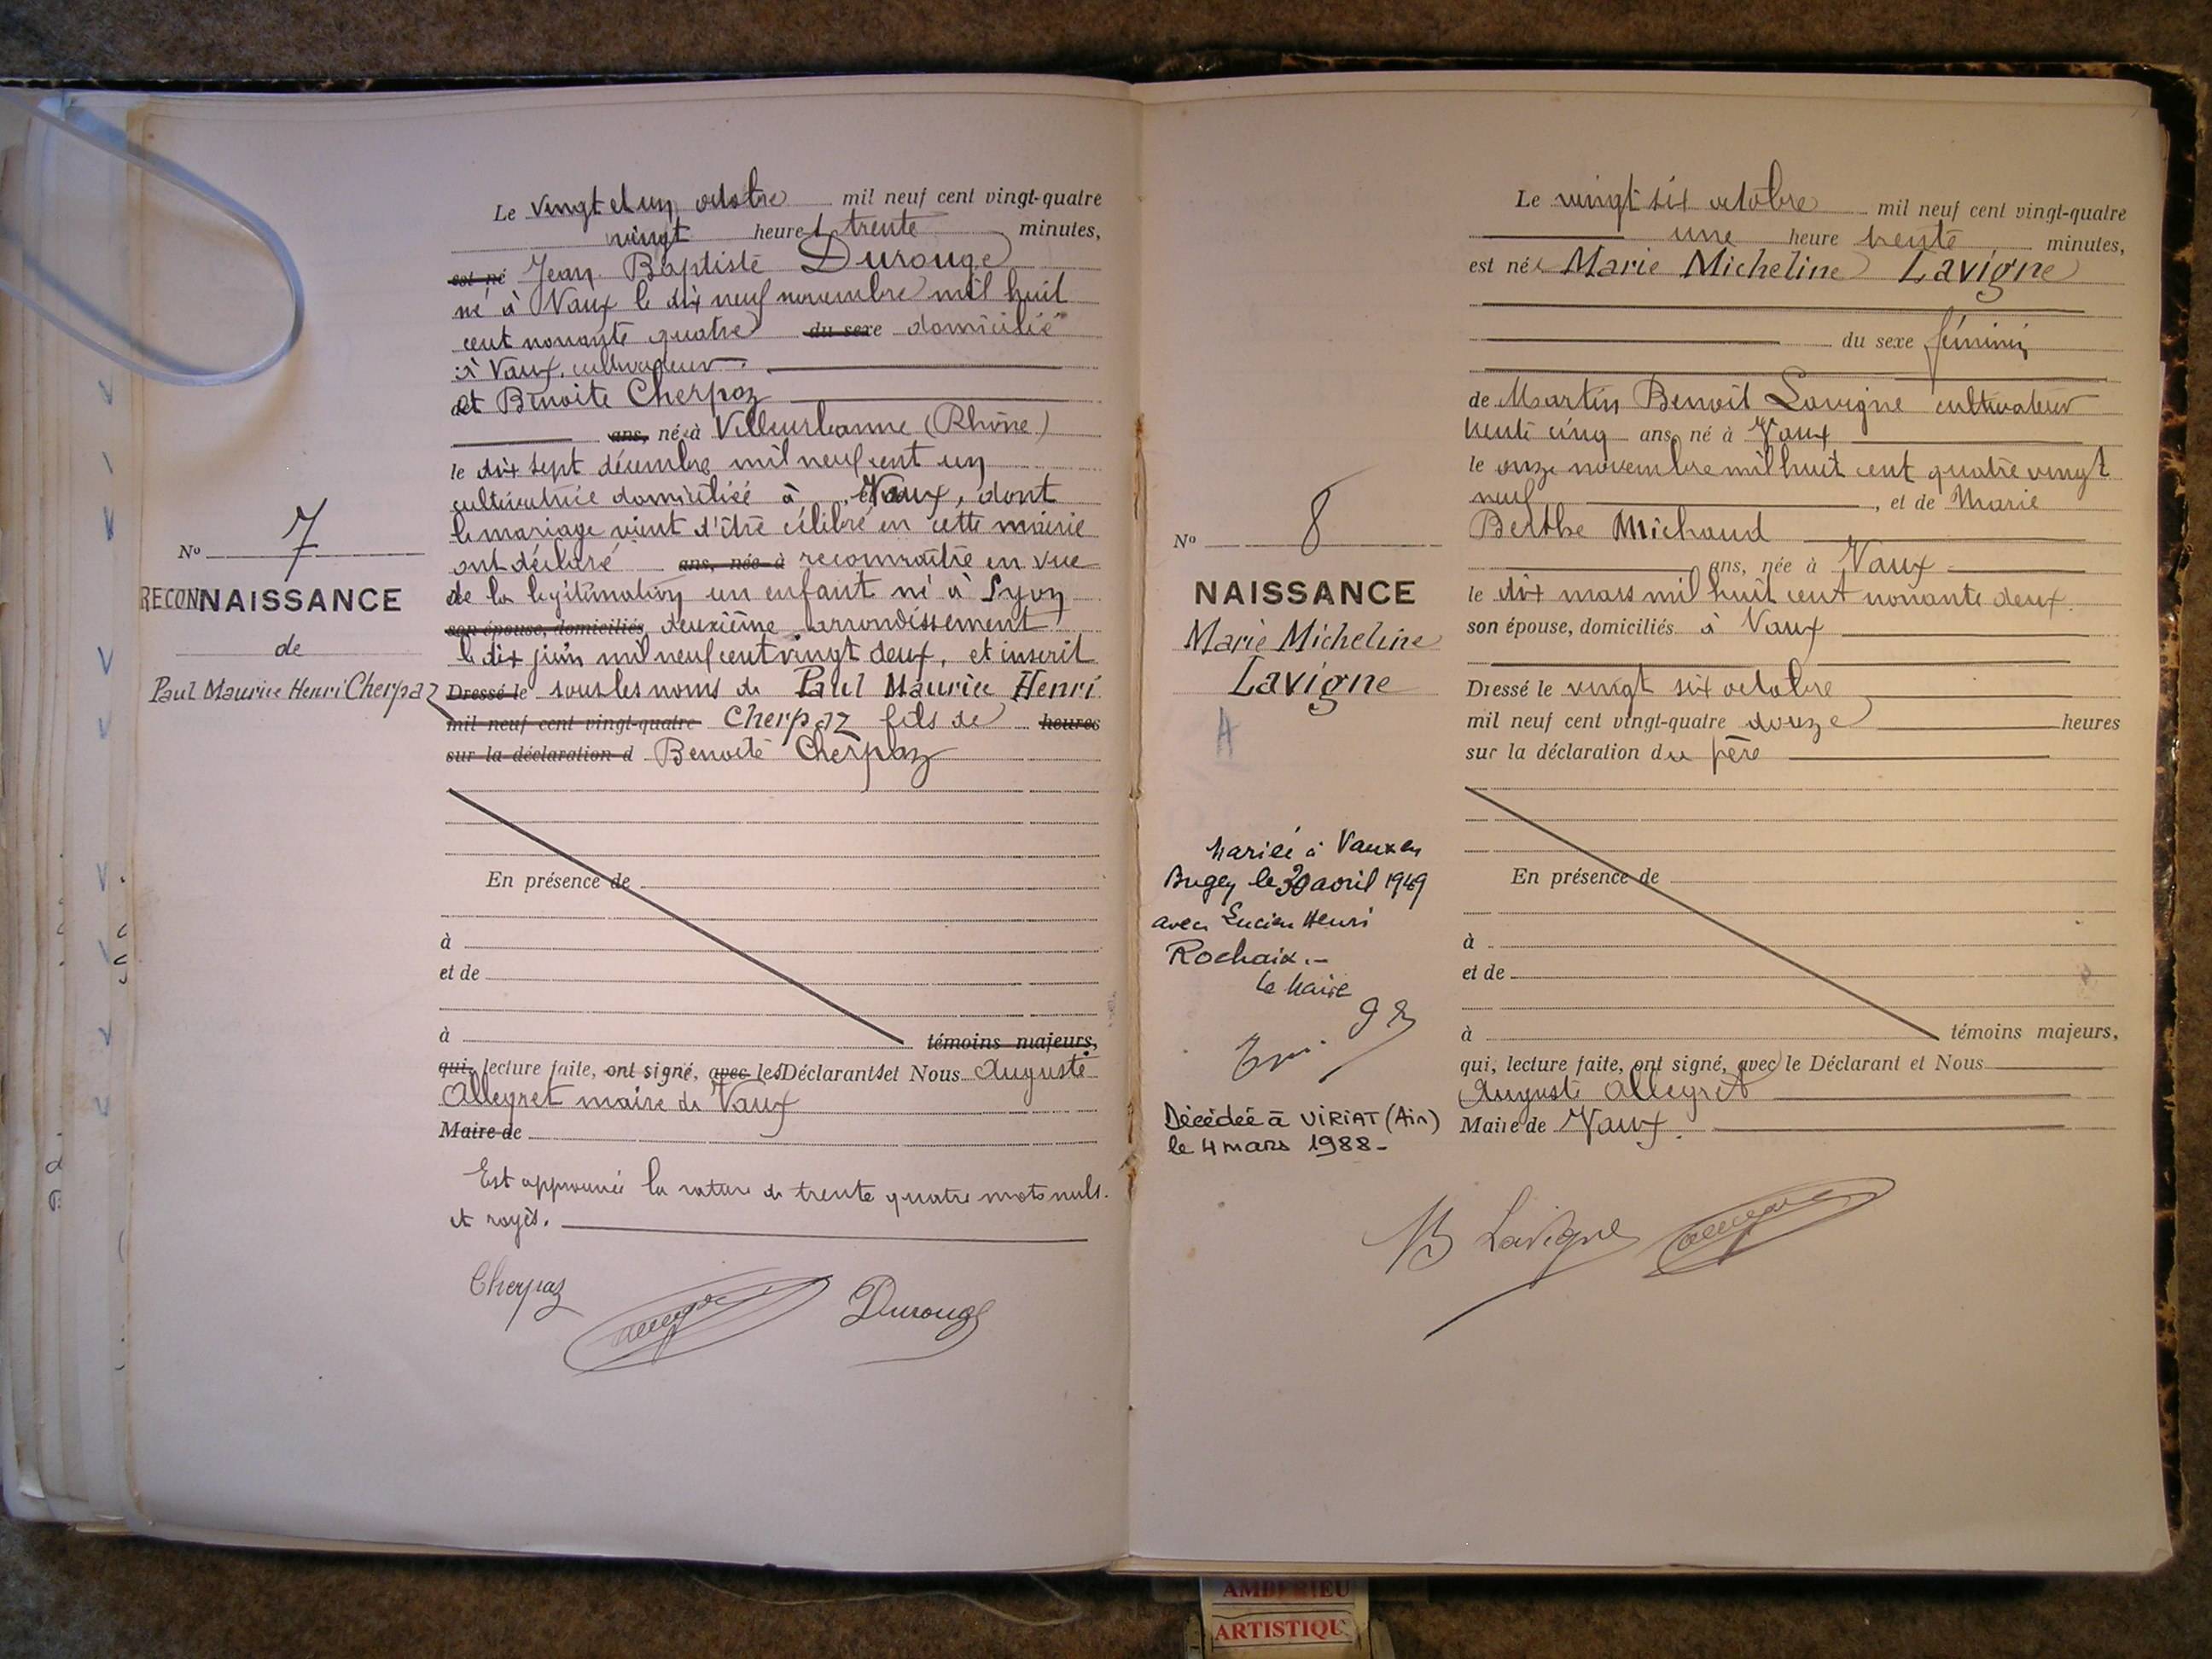 Le vingt et un octobre mil neuf cent vingt-quatre
vingt heures trente minutes,
est né Jean Baptiste Durouge
né à Vaux le dix neuf novembre mil huit
cent nonante quatre du sexe domicilié
à Vaux, cultivateur
et Benoite Cherpaz
ans, née à Villeurbanne (Rhône)
le dix sept décembre mil neuf cent un
cultivatrice domiciliée à Vaux, dont
le mariage vient d'être célébré en cette mairie
ont déclaré ans, née à reconnaître en vue
de la légitimation un enfant né à Lyon
son épouse, domiciliés deuxième arrondissement
le dix juin mil neuf cent vingt deux, et inscrit
Dressé le sous les noms de Paul Maurice Henri
mil neuf cent vingt-quatre Cherpaz fils de heures
sur la déclaration d Benoite Cherpaz
No 7
RECONNAISSANCE
de
Paul Maurice Henri Cherpaz
En présence de
à
et de
à témoins majeurs,
qui, lecture faite, ont signé, avec les Déclarants et Nous Auguste
Alleyret maire de Vaux
Maire de
Est approuvée la rature de trente quatre mots nuls
et rayés.
Cherpaz
Durouge
Le vingt six octobre mil neuf cent vingt-quatre
une heure trente minutes,
est née Marie Micheline Lavigne
du sexe féminin
de Martin Benoit Lavigne cultivateur
trente cinq ans, né à Vaux
le onze novembre mil huit cent quatre vingt
neuf, et de Marie
Berthe Michaud
ans, née à Vaux
le dix mars mil huit cent nonante deux
son épouse, domiciliés à Vaux
Dressé le vingt six octobre
mil neuf cent vingt-quatre douze heures
sur la déclaration du père
No 8
NAISSANCE
Marie Micheline
Lavigne
A
Mariée à Vaux en
Bugey le 30 avril 1949
avec Lucien Henri
Rochaix.-
le Maire
Décédée à VIRIAT (Ain)
le 4 mars 1988-
En présence de
à
et de
à témoins majeurs,
qui, lecture faite, ont signé, avec le Déclarant et Nous
Auguste Alleyret
Maire de Vaux.
B Lavigne
AMBERIEU
ARTISTIQU